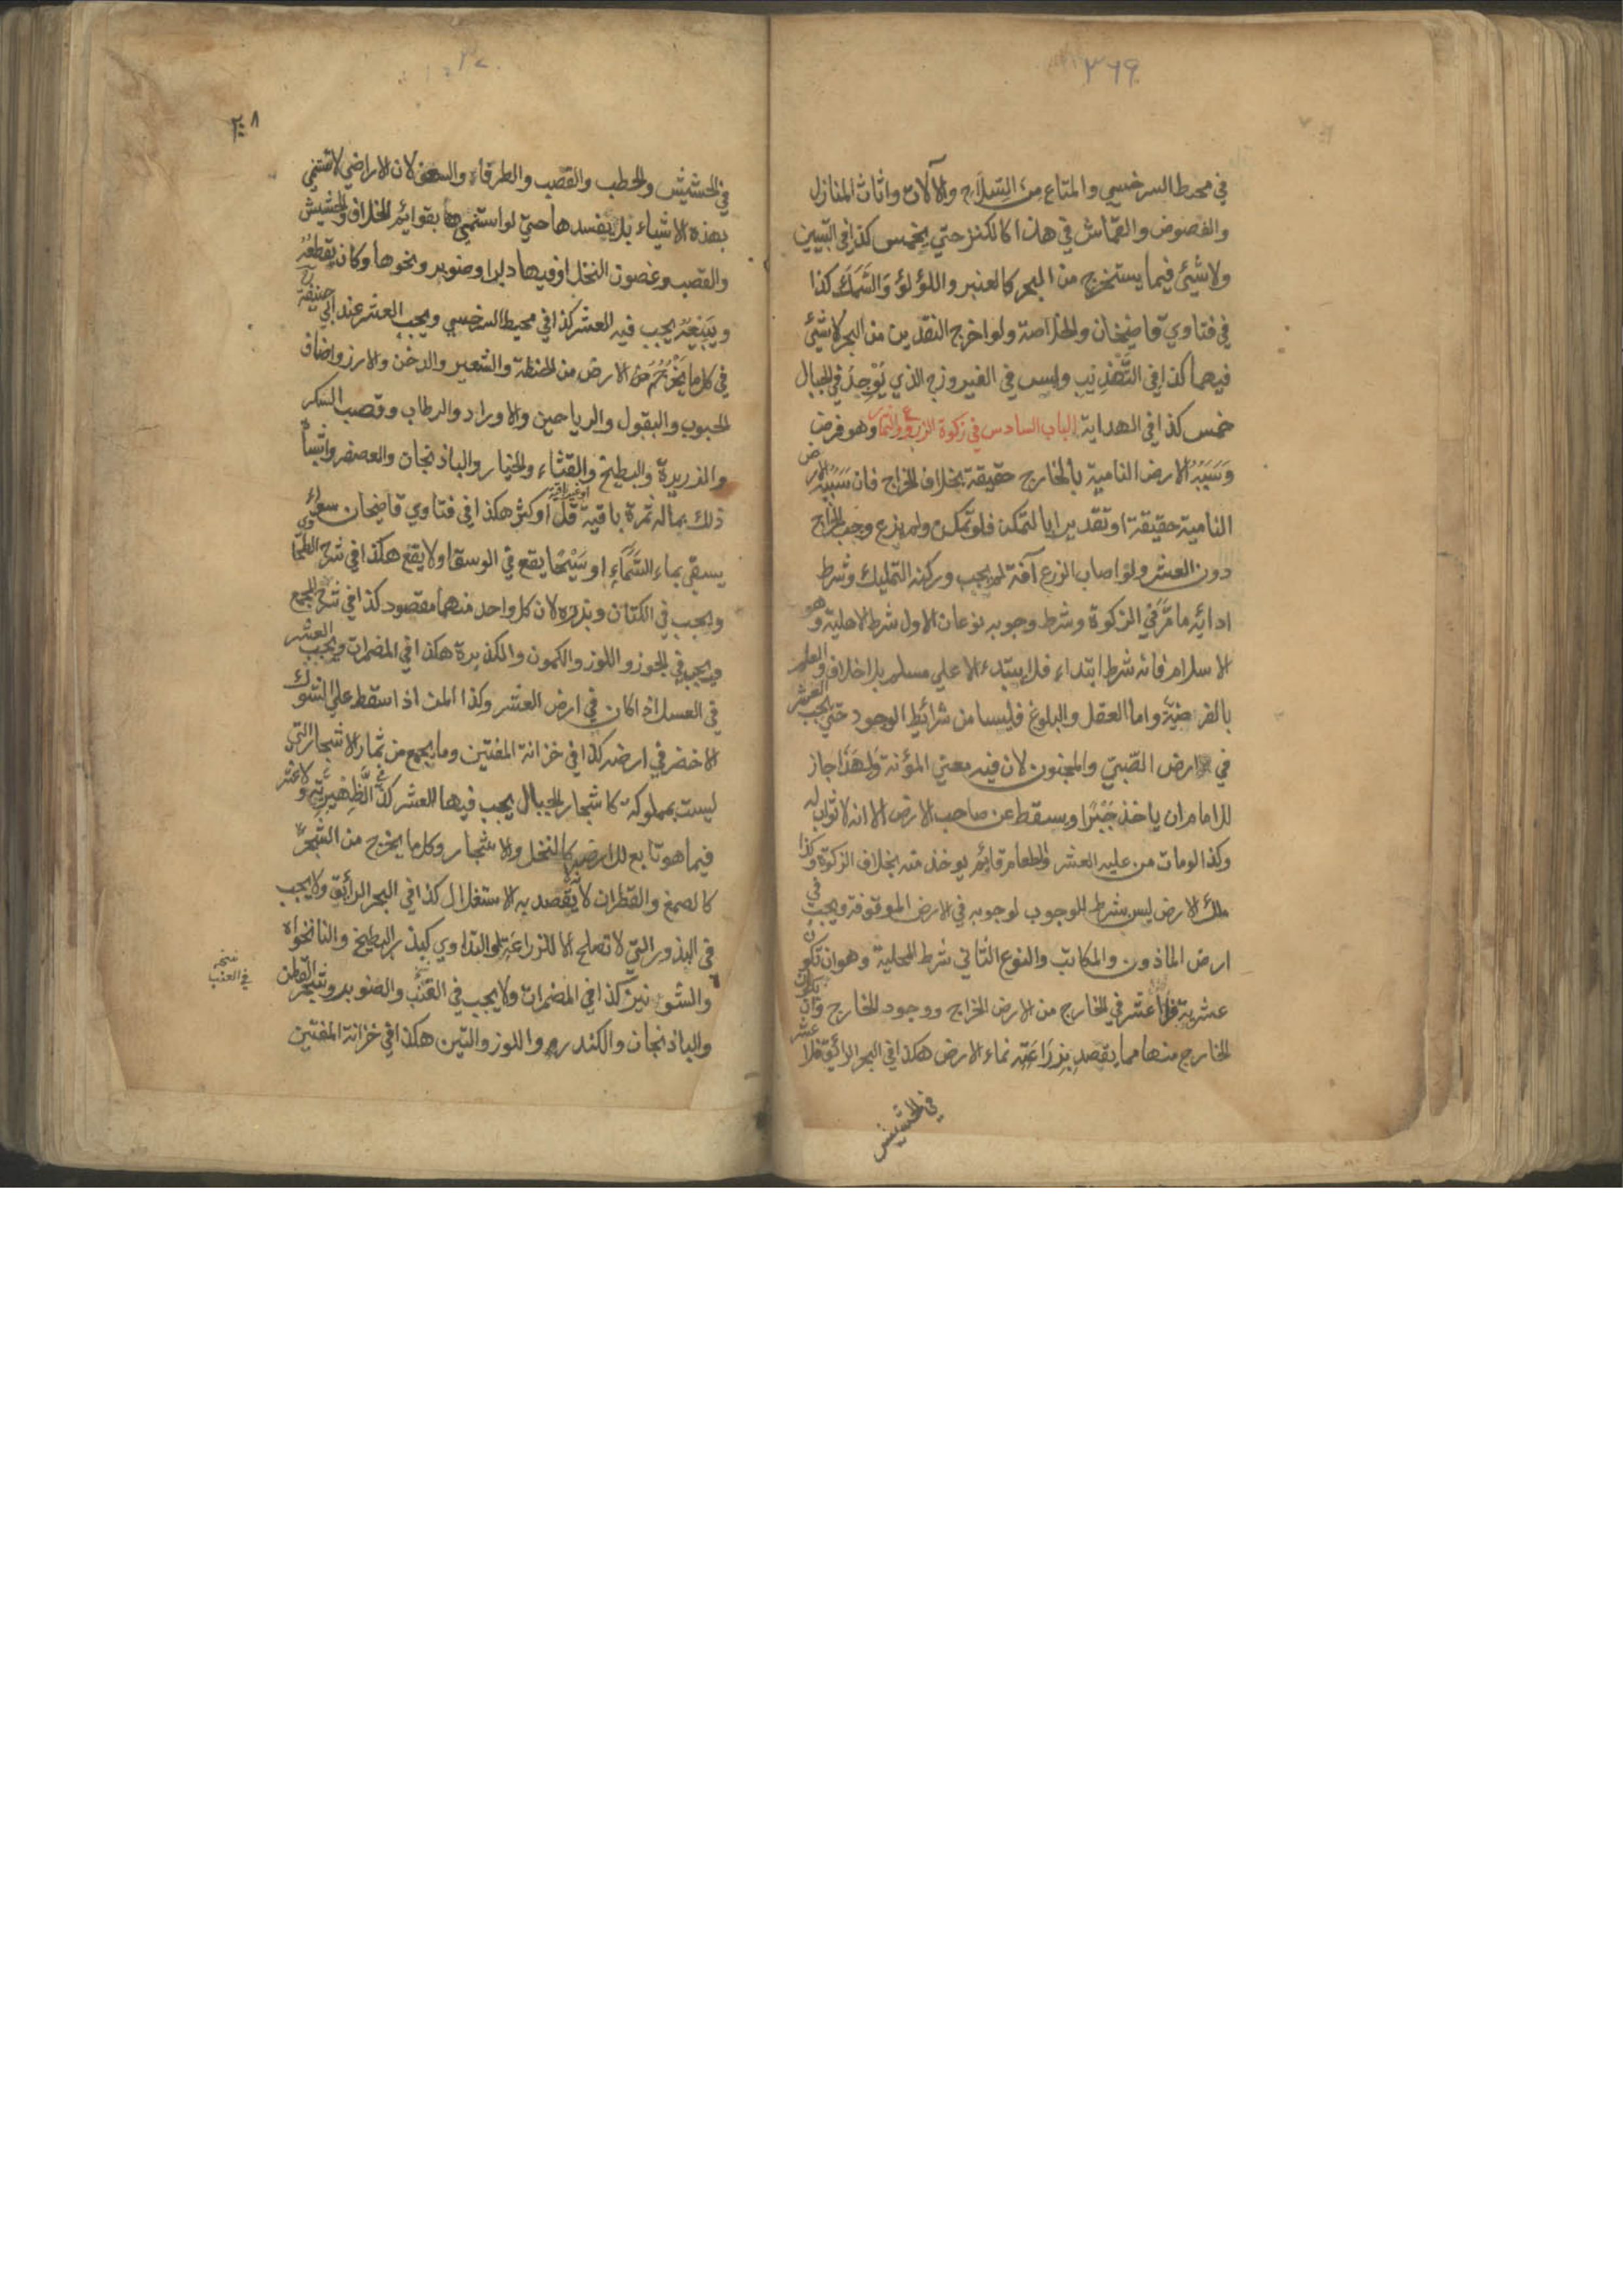 ٣٦٩
في محيط السرخسي والمتاع من السلاح والآلات واثاث المنازل
والفصوص والقماش في هذا كالكنز حتي يخمس كذا في التبيين
ولا شيئ فيما يستخرج من البحر كالعنبر واللؤلؤ والسمك كذا
في فتاوي قاضيخان والخلاصة ولو اخرج النقدين من البحر لا شيئ
فيهما كذا في التهذيب وليس في الفيروزج الذي يوجد في الجبال
خمس كذا في الهداية الباب السادس في زكوة الزرع والثمار وهو فرض
وسببه الارض النامية بالخارج حقيقة بخلاف الخراج فان سببه الارض
النامية حقيقة او تقديرا بالتمكن فلو تمكن ولم يزرع وجب الخراج
دون العشر ولو اصاب الزرع آفة لم يجب وركنه التمليك وشرط
ادائه ما مر في الزكوة وشرط وجوبه نوعان الاول شرط الاهلية وهو
الاسلام فانه شرط ابتداء فلا يبتدء الا علي مسلم بلا خلاف والعلم
بالفرضية واما العقل والبلوغ فليسا من شرائط الوجود حتي يجب العشر
في ارض الصبي والمجنون لان فيه معني المؤنة ولهذا جاز
للامام ان ياخذ جبرا ويسقط عن صاحب الارض الا انه لا ثواب له
وكذا لو مات من عليه العشر والطعام قائم يوخذ منه بخلاف الزكوة وكذا
ملك الارض ليس بشرط للوجوب لوجوبه في الارض الموقوفة ويجب في
ارض الماذون والمكاتب والنوع الثاني شرط المحلية وهو ان تكون
عشرية فلا عشر في الخارج من الارض الخراج ووجود الخارج وان يكون
الخارج منها مما يقصد بزراعته نماء الارض هكذا في البحر الرائق فلا عشر
في الحشيش
٣٧٠
٢٠٨
في الحشيش والحطب والقصب والطرفاء والسعف لان الاراضي لا تستنمي
بهذه الاشياء بل يفسدها حتي لو استنمي بقوائم الخلاف والحشيش
والقصب وغصون النخل او فيها دلب او صنوبر ونحوها وكان يقطعه
ويبيعه يجب فيه العشر كذا في محيط السرخسي ويجب العشر عند ابي حنيفة رح
في كل ما يخرجه من الارض من الحنطة والشعير والدخن والارز واضاف
الحبوب والبقول والرياحين والاوراد والرطاب وقصب السكر
والذريرة والبطيخ والقثاء والخيار والباذنجان والعصفر واشباه
ذلك مما له ثمرة باقية او غير باقية قل او كثر هكذا في فتاوي قاضيخان سواء
يسقي بماء السماء او سيحا يقع في الوسق او لا يقع هكذا في شرح الطحاوي
ويجب في الكتان وبذره لان كل واحد منهما مقصود كذا في شرح المجمع
ويجب في الجوز واللوز والكمون والكذبرة هكذا في المضمرات ويجب العشر
في العسل اذا كان في ارض العشر وكذا المن اذا سقط علي الشوك
الاخضر في ارضه كذا في خزانة المفتين وما يجمع من ثمار الاشجار التي
ليست بمملوكة كاشجار الجبال يجب فيها العشر كذا في الظهيرية ولا عشر
فيما هو تابع للارض كالنخل والاشجار وكل ما يخرج من الشجر
كالصمغ والقطران لانه لا يقصد به الاستغلال كذا في البحر الرائق ولا يجب
في البذور التي لا تصلح الا للزراعة والتداوي كبذر البطيخ والنانخواه
والشونيز كذا في المضمرات ولا يجب في القنب والصنوبر وشجر القطن
والباذنجان والكندر والموز والتين هكذا في خزانة المفتين
شجر
في العنب